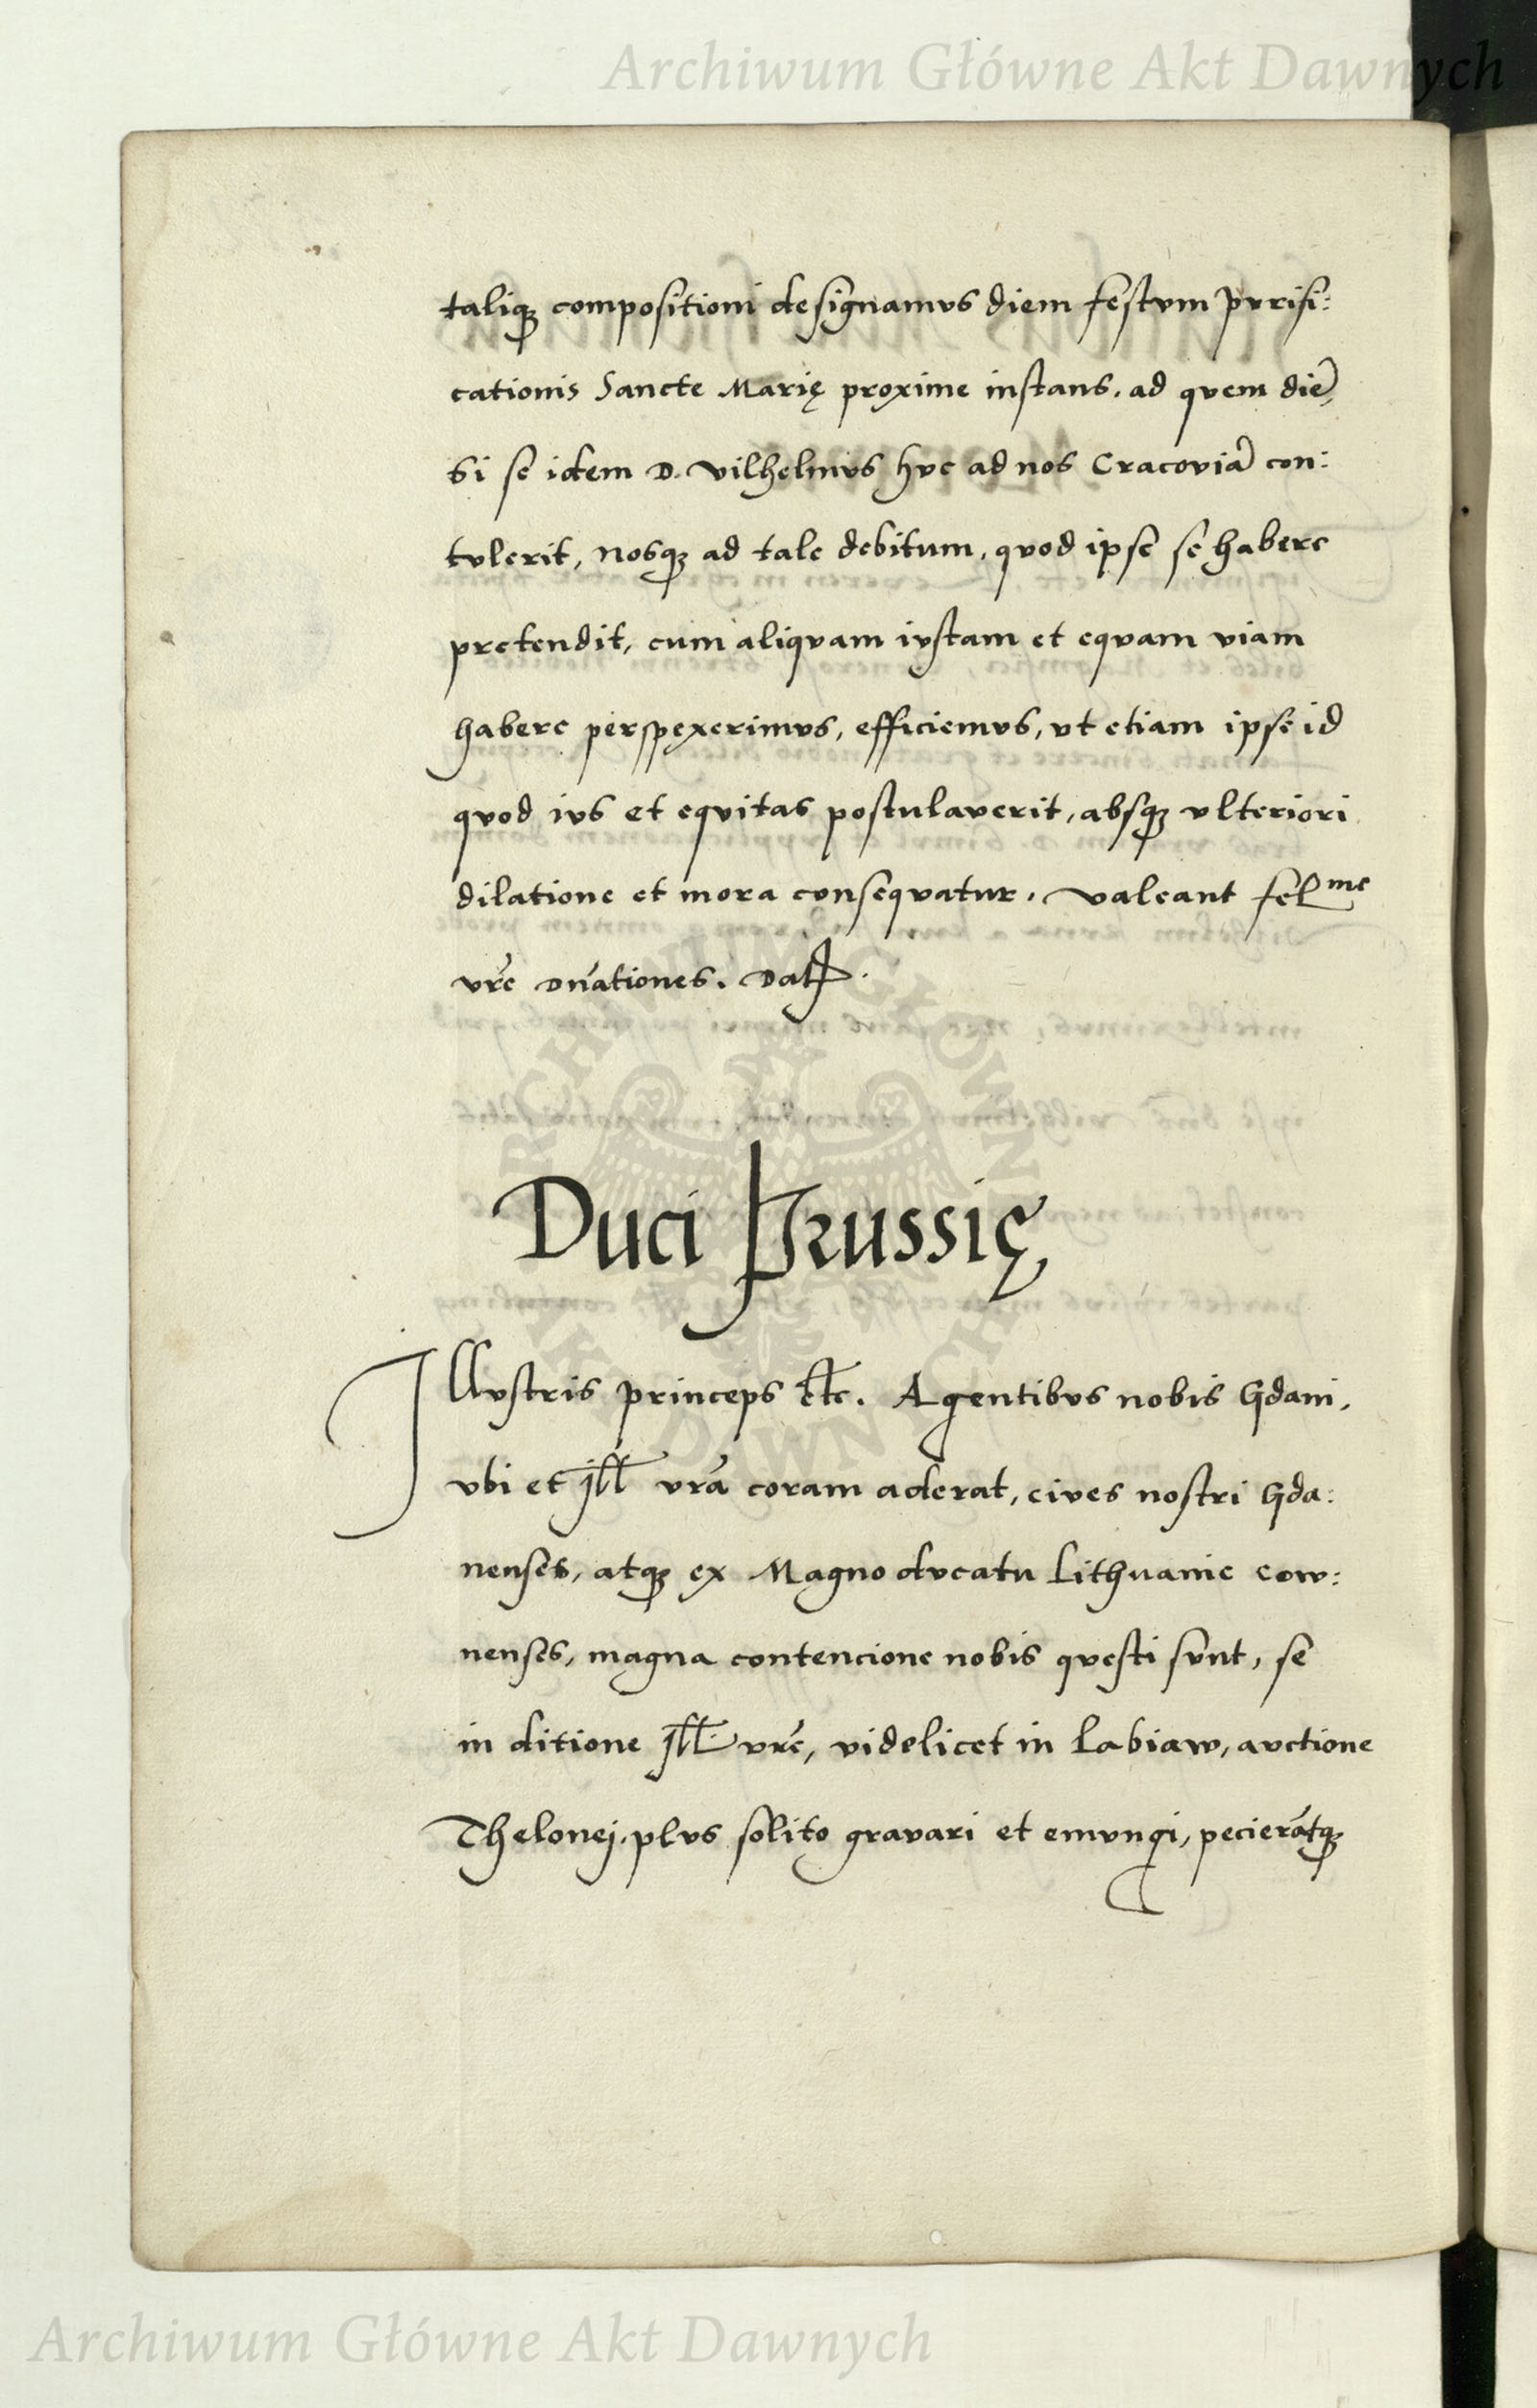 Archiwum Główne Akt Dawnych
taliqꝫ compositioni designamus diem festum purifi:
cationis Sancte Marię proxime instans, ad quem diē,
si se idem D. Vilhelmus huc ad nos Cracoviā con:
tulerit, nosqꝫ ad tale debitum, quod ipse se habere
pretendit, cum aliquam iustam et equam viam
habere perspexerimus, efficiemus, ut etiam ipse id
quod ius et equitas postulaverit, absqꝫ ulteriori
dilatione et mora consequatur. Valeant felme
vrē Dnātiones. Dat.
Duci Prussię
Illustris princeps etc. Agentibus nobis Gdani,
ubi et Ill vrā coram aderat, cives nostri Gda:
nenses, atqꝫ ex Magno ducatu Lithuanie cow:
nenses, magna contencione nobis questi sunt, se
in ditione Ill. vrē, videlicet in Labiaw, auctione
Thelonej, plus solito gravari et emungi, pecierātqꝫ
ARCHIWUM GŁÓWNE AKT DAWNYCH
Archiwum Główne Akt Dawnych